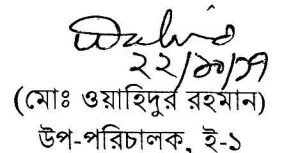 ২২/১০/১৭
(মোঃ ওয়াহিদুর রহমান)
উপ-পরিচালক, ই-১